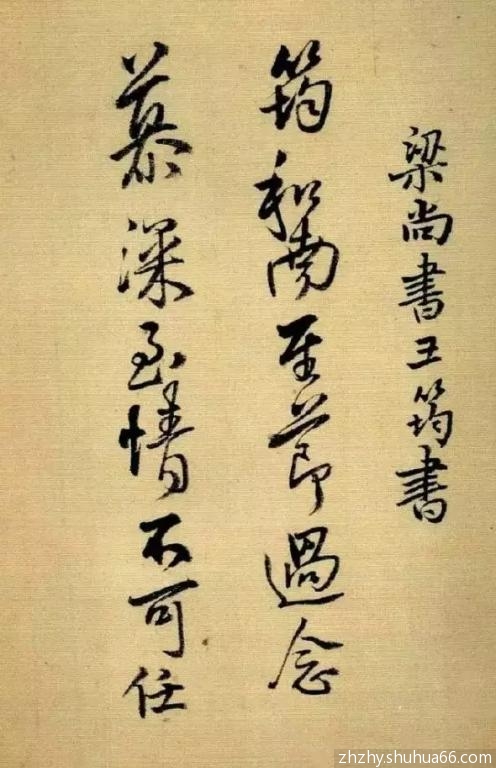 梁尚書王筠書
筠和南至節過念
慕深至情不可任
zhzhy.shuhua66.com